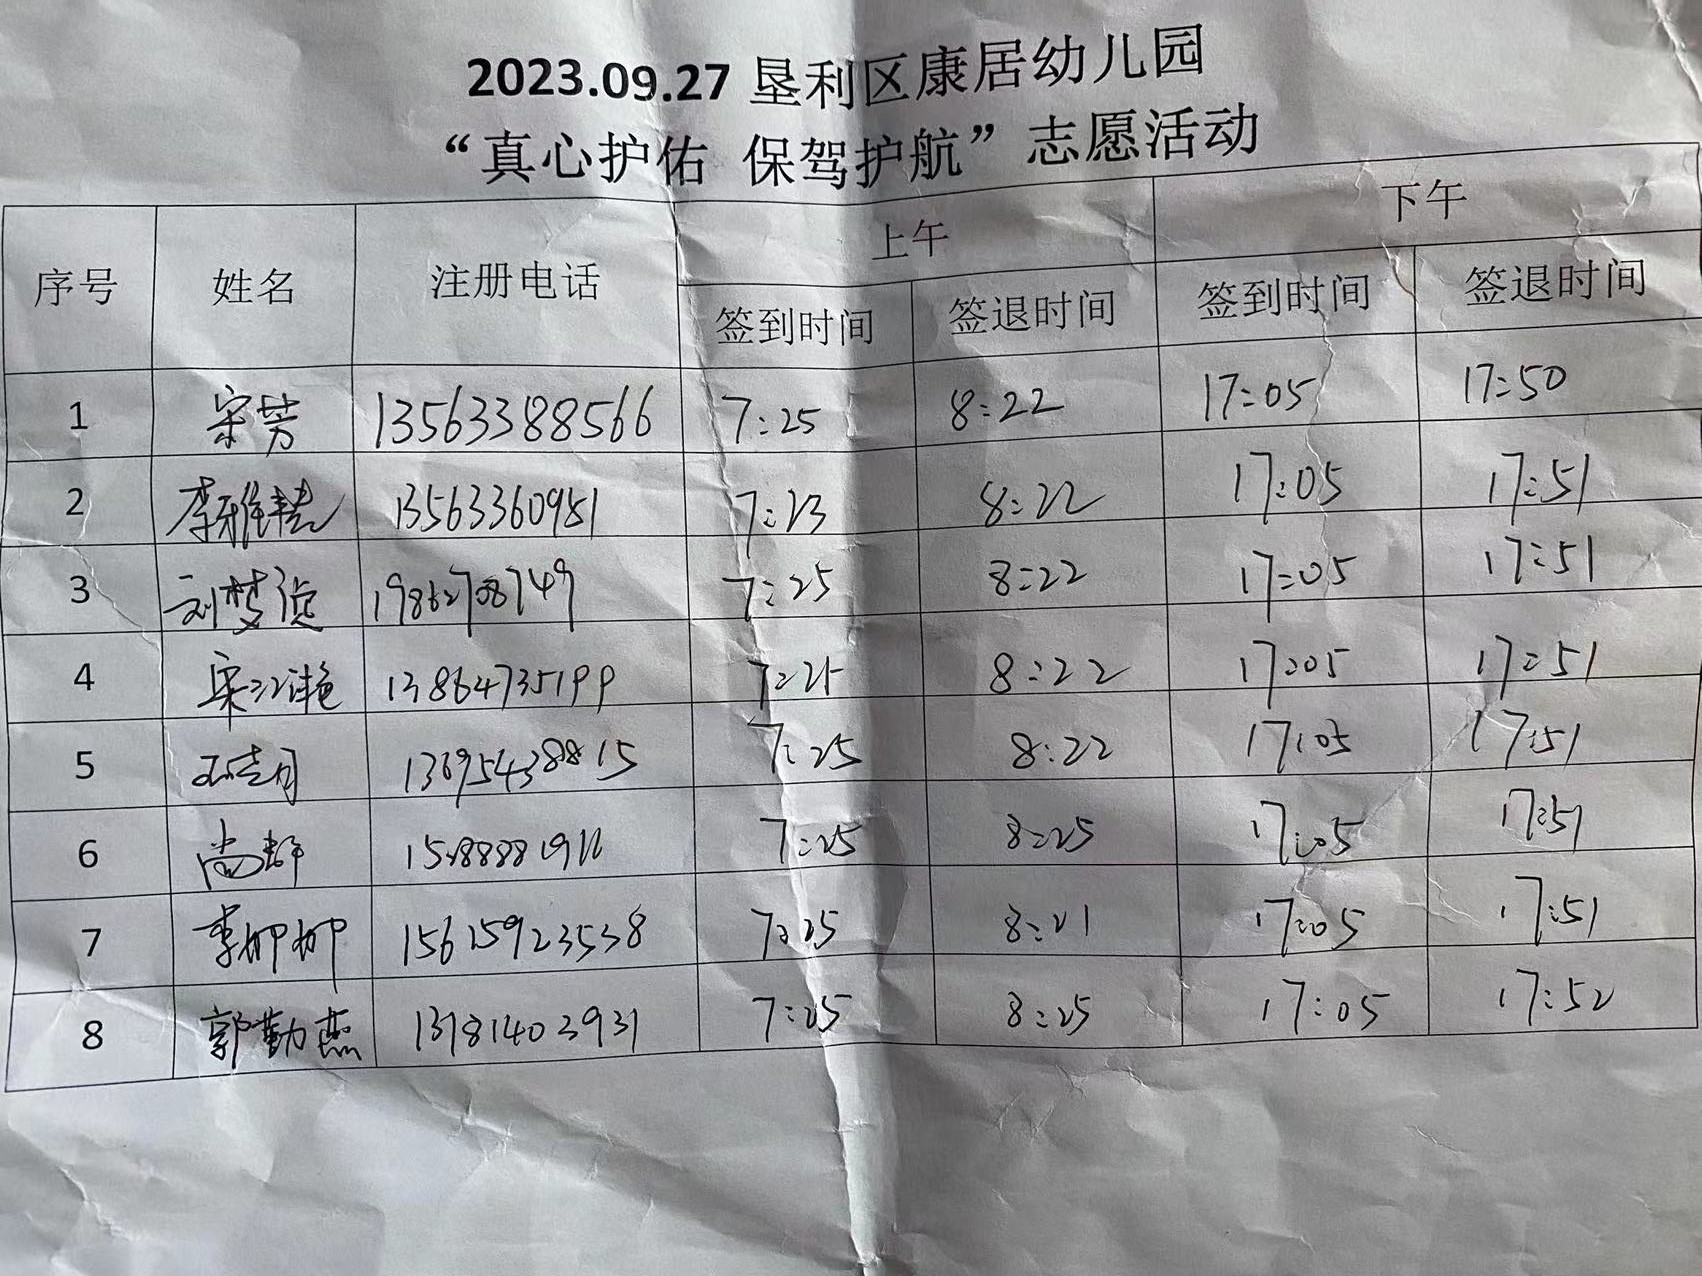 2023.09.27 垦利区康居幼儿园
“真心护佑 保驾护航”志愿活动
序号 姓名 注册电话 上午 下午
签到时间 签退时间 签到时间 签退时间
1 宋芳 13563388566 7:25 8:22 17:05 17:50
2 李雅慧 13563360951 7:23 8:22 17:05 17:51
3 刘梦滢 19862708749 7:25 8:22 17:05 17:51
4 宋江艳 13864735199 7:25 8:22 17:05 17:51
5 13695438815 7:25 8:22 17:05 17:51
6 尚静 7:25 8:25 17:05 17:51
7 李柳柳 15615923538 7:25 8:21 17:05 17:51
8 郭勤燕 13181403931 7:25 8:25 17:05 17:52